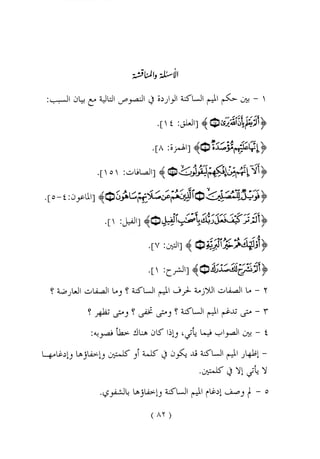 الأسئلة والمناقشة
١ - بين حكم الميم الساكنة الواردة في النصوص التالية مع بيان السبب:
﴿ أَلَمْ يَعْلَمْ بِأَنَّ اللَّهَ يَرَىٰ ﴾ [العلق: ١٤].
﴿ إِنَّهَا عَلَيْهِمْ مُؤْصَدَةٌ ﴾ [الهمزة: ٨].
﴿ أَلَا إِنَّهُمْ مِنْ إِفْكِهِمْ لَيَقُولُونَ ﴾ [الصافات: ١٥١].
﴿ فَوَيْلٌ لِلْمُصَلِّينَ الَّذِينَ هُمْ عَنْ صَلَاتِهِمْ سَاهُونَ ﴾ [الماعون: ٤-٥].
﴿ أَلَمْ تَرَ كَيْفَ فَعَلَ رَبُّكَ بِأَصْحَابِ الْفِيلِ ﴾ [الفيل: ١].
﴿ أُولَٰئِكَ هُمْ خَيْرُ الْبَرِيَّةِ ﴾ [التين: ٧].
﴿ أَلَمْ نَشْرَحْ لَكَ صَدْرَكَ ﴾ [الشرح: ١].
٢ - ما الصفات اللازمة لحرف الميم الساكنة ؟ وما الصفات العارضة ؟
٣ - متى تدغم الميم الساكنة ؟ ومتى تخفى ؟ ومتى تظهر ؟
٤ - بين الصواب فيما يأتي، وإذا كان هناك خطأ فصوبه:
- إظهار الميم الساكنة قد يكون في كلمة أو كلمتين وإخفاؤها وإدغامها
لا يأتي إلا في كلمتين.
٥ - لم وصف إدغام الميم الساكنة وإخفاؤها بالشفوي.
( ٨٢ )